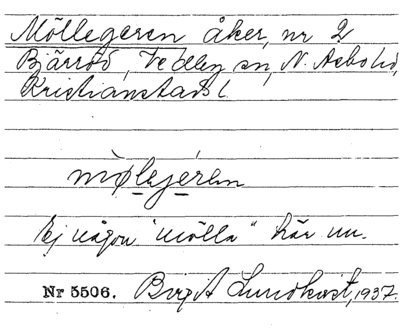 Möllegeren åker, nr 2
Bjärröd, Vedby sn, N. Åsbo hd,
Kristianstads l.
mø̀lejéren
Ej någon "mölla" här nu.
Nr 5506. Birgit Lundkvist, 1937.